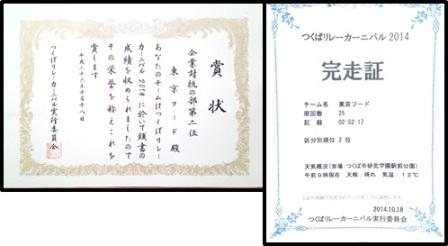 賞状
企業対抗の部第二位
東京フード殿
あなたのチームはつくばリレー
カーニバル2014に於いて頭書の
成績を収められましたので
その栄誉を称えこれを
賞します
平成二十六年十月十八日
つくばリレーカーニバル実行委員会
つくばリレーカーニバル 2014
完走証
チーム名 東京フード
周回数 25
記録 02:52:17
区分別順位 2 位
天気概況(会場:つくば市研究学園駅前公園)
午前9時現在 天候:晴れ 気温:12℃
2014.10.18
つくばリレーカーニバル実行委員会